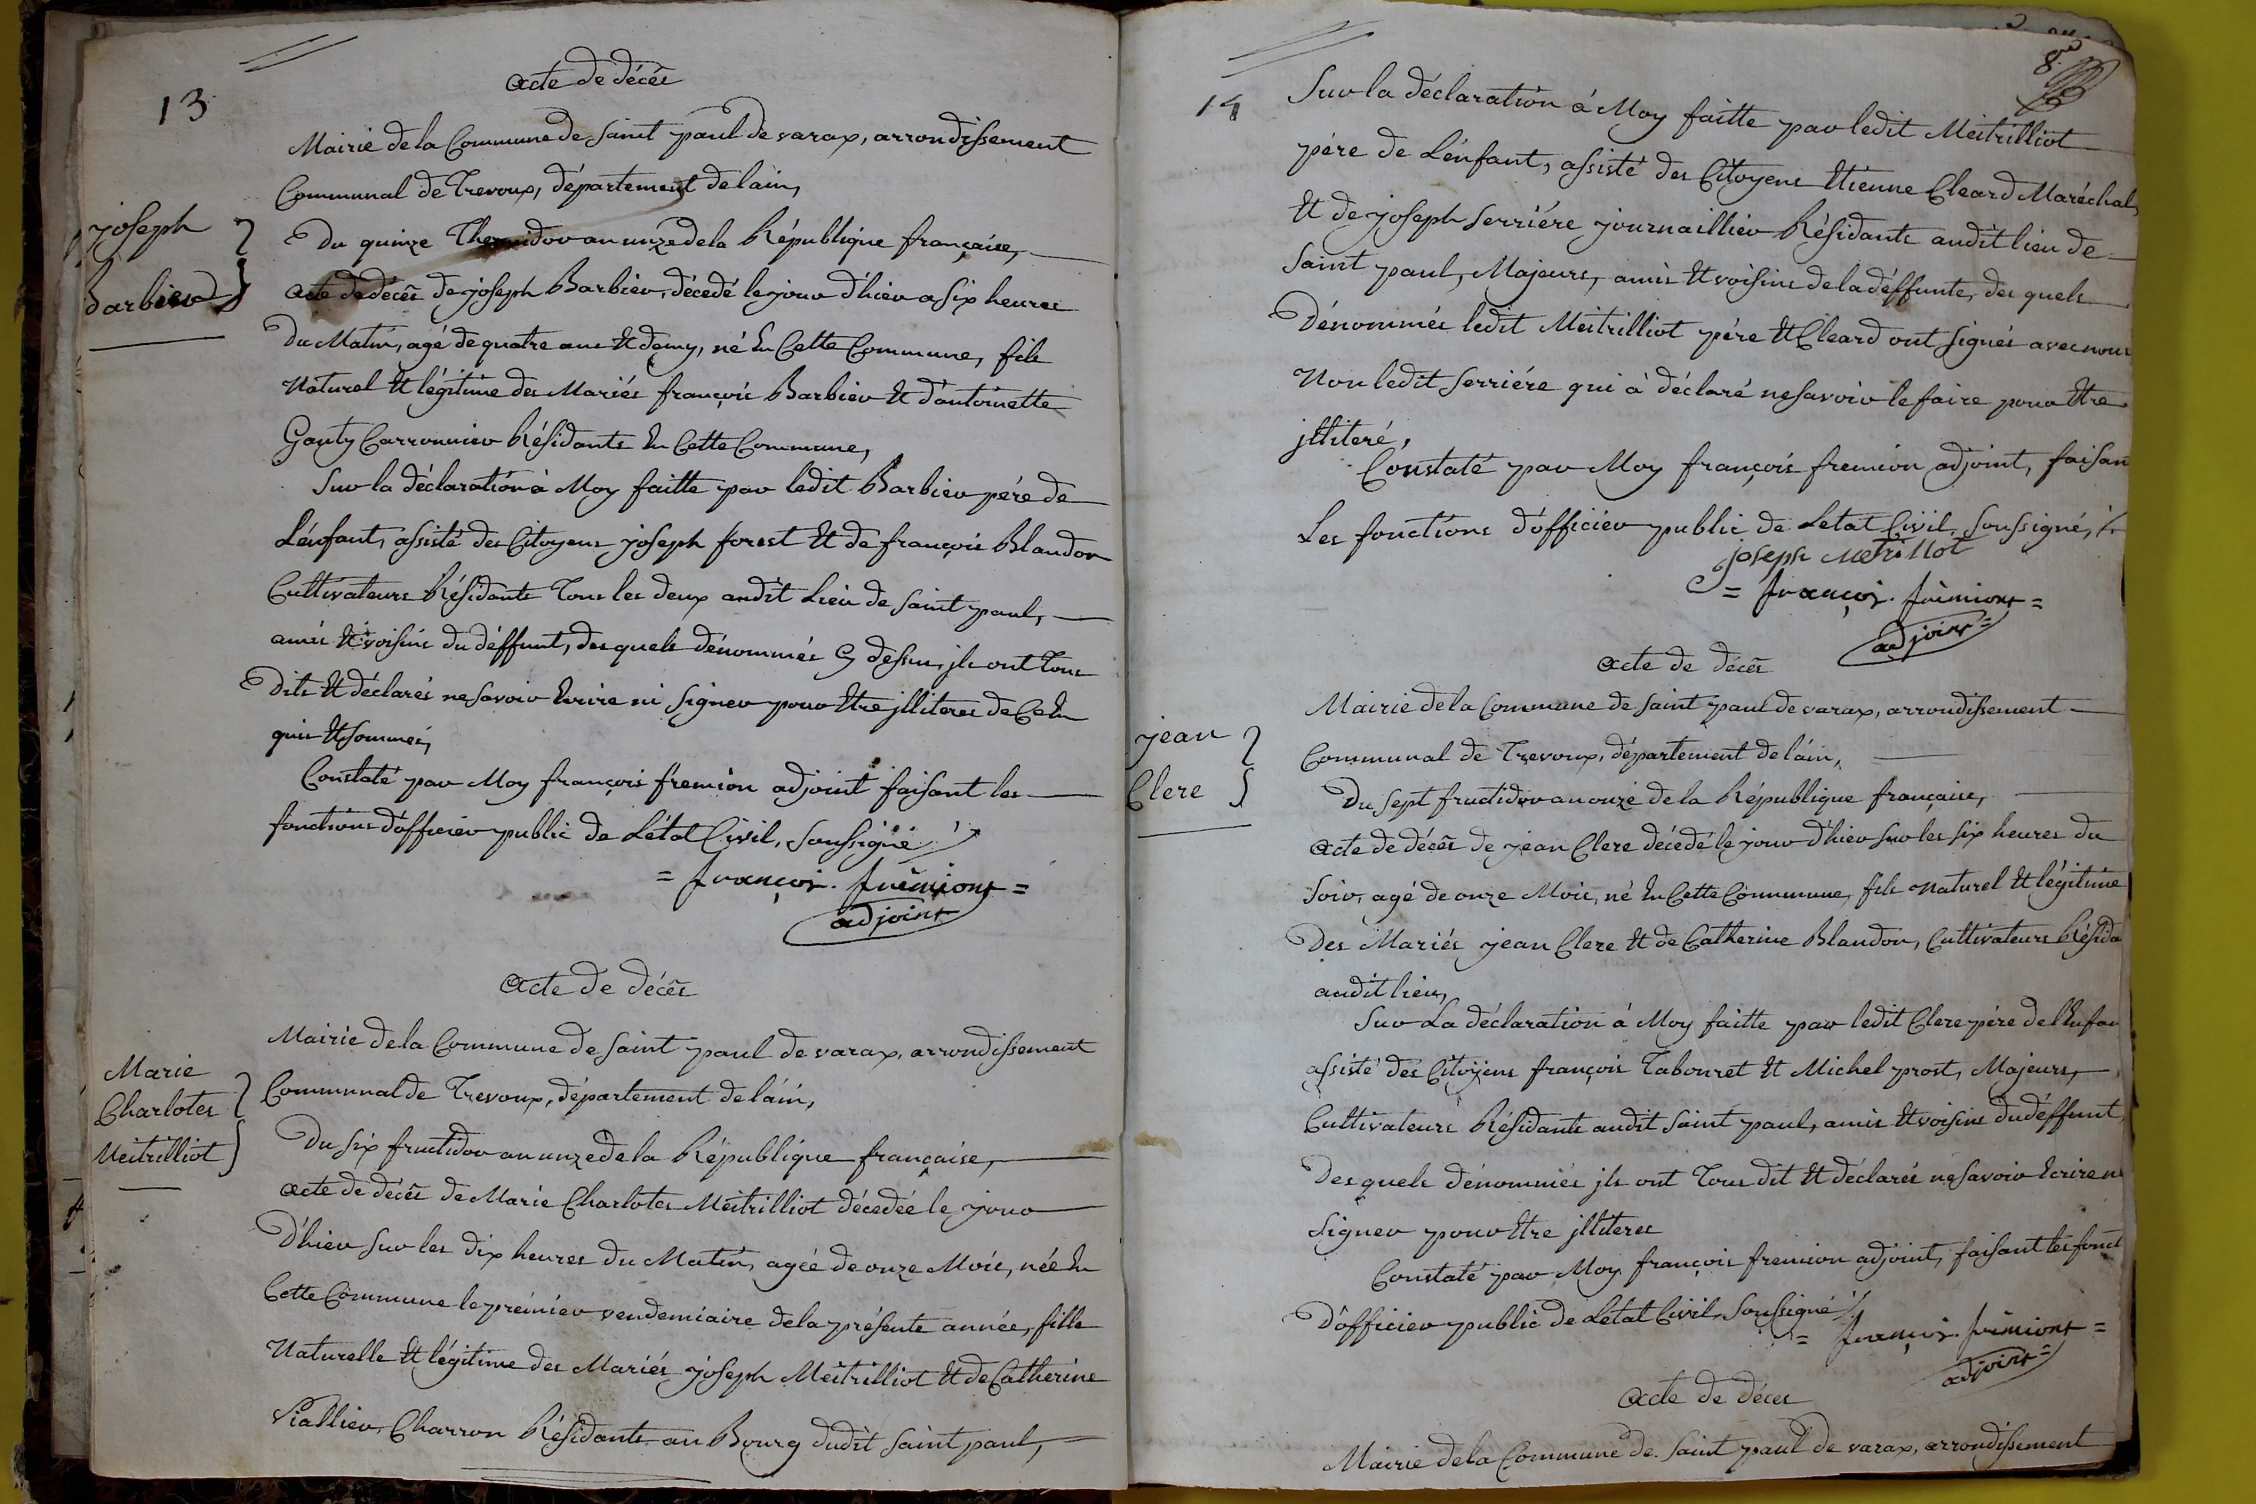 13
acte de décès
Mairie de la Commune de Saint paul de varax, arrondissement
Communal de Trevoux, département de lain,
joseph
Barbier
Du quinze Thermidor an unze de la République française,
acte de décès de joseph Barbier, décedé le jour d'hier a six heures
Du Matin, agé de quatre ans Et demy, né En Cette Commune, fils
Naturel Et légitime des Mariés françois Barbier Et d'antoinette
Gonty Carronnier Résidants En Cette Commune,
Sur la déclaration à Moy faitte par ledit Barbier pére de
L'énfant, assisté des Citoyens joseph forest Et de françois Blandon
Cultivateurs Résidants Tous les deux audit Lieu de Saint paul,
amis Et voisins du déffunt, des quels dénommés Cy dessus, jls ont Tous
Dits Et déclarés ne Savoir Ecrire ni Signer pour Etre jlliteres de Ce En
quis Et Sommés,
Constaté par Moy françois fremion adjoint faisant les
fonctions d'officier public de L'état Civil, Soussigné
= françois. frèmiont =
adjoint
acte de décès
Mairie de la Commune de Saint paul de varax, arrondissement
Communal de Trevoux, département de láin,
Marie
Charlotes
Meitrilliot
Du six fructidor an unze de la République française,
acte de décès de Marie Charlotes Meitrilliot décedée le jour
D'hier Sur les dix heures du Matin, agée de onze Mois, née En
Cette Commune le prémier vendemiaire de la présente année, fille
Naturelle Et légitime des Mariés joseph Meitrilliot Et de Catherine
Viallier, Charron Résidants au Bourg dudit Saint paul,
14
8e
Sur la déclaration à Moy faitte par ledit Meitrilliot
pére de L'énfant, assisté des Citoyens Etienne Cleard Maréchal,
Et de joseph Serriére journaillier Résidants audit lieu de
Saint paul, Majeurs, amis Et voisins de la déffunte, des quels
Dénommés ledit Meitrilliot pére Et Cleard ont Signés avec nous
Non ledit Serriére qui à déclaré ne Savoir le faire pour Etre
jlliteré,
Constaté par Moy françois fremion adjoint, faisan
Les fonctions d'officier public de Letat Civil, Soussigné,
joseph metrillot
= françois. frèmiont =
adjoint =
acte de décès
Mairie de la Commune de Saint paul de varax, arrondissement
Communal de Trevoux, département de láin,
jean
Clere
Du Sept fructidor an onze de la République française,
acte de décès de jean Clere décedé le jour d'hier Sur les Six heures du
Soir, agé de onze Mois, né En Cette Commune, fils Naturel Et légitime
Des Mariés jean Clere Et de Catherine Blandon, Cultivateurs Résida
audit lieu,
Sur La déclaration à Moy faitte par ledit Clere pére de l'Enfan
assisté des Citoyens françois Tabouret Et Michel prost, Majeurs,
Cultivateurs Résidants audit Saint paul, amis Et voisins du déffunt,
Des quels dénommés jls ont Tous dit Et déclarés ne Savoir Ecrire n
Signer pour Etre jlliteres
Constaté par Moy françois fremion adjoint, faisant les fonct
D'officier public de Létat Civil, Soussigné
= françois. frèmiont =
adjoint =
acte de décès
Mairie de la Commune de Saint paul de varax, arrondissement